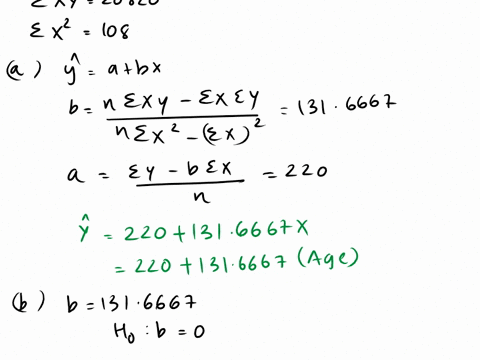 Σ XY = 20820
Σ X² = 108
(a) ŷ = a + bx
b = n Σ XY − ΣX ΣY / n Σ X² − (Σ X)² = 131.6667
a = ΣY − b ΣX / n = 220
Ŷ = 220 + 131.6667 X
= 220 + 131.6667 (Age)
(b) b = 131.6667
H₀ : b = 0